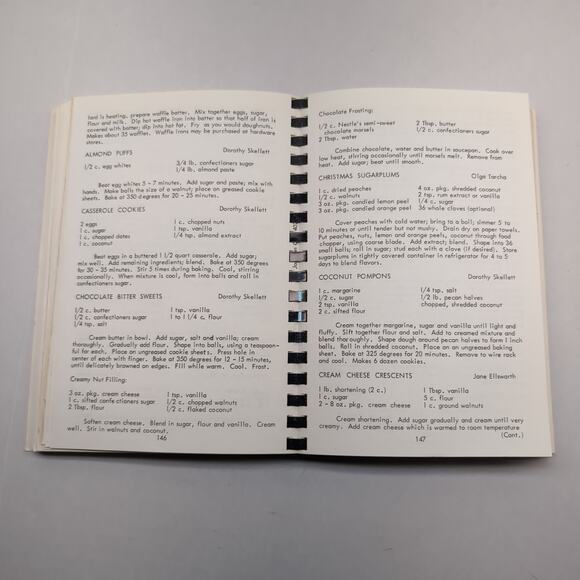 lard is heating, prepare waffle batter. Mix together eggs, sugar,
flour and milk. Dip hot waffle iron into batter so that half of iron is
covered with batter; dip into hot fat. Fry as you would doughnuts.
Makes about 35 waffles. Waffle irons may be purchased at hardware
stores.
ALMOND PUFFS Dorothy Skellett
1/2 c. egg whites 3/4 lb. confectioners sugar
1/4 lb. almond paste
Beat egg whites 5 - 7 minutes. Add sugar and paste; mix with
hands. Make balls the size of a walnut; place on greased cookie
sheets. Bake at 350 degrees for 20 - 25 minutes.
CASSEROLE COOKIES Dorothy Skellett
2 eggs 1 c. chopped nuts
1 c. sugar 1 tsp. vanilla
1 c. chopped dates 1/4 tsp. almond extract
1 c. coconut
Beat eggs in a buttered 1 1/2 quart casserole. Add sugar;
mix well. Add remaining ingredients; blend. Bake at 350 degrees
for 30 - 35 minutes. Stir 5 times during baking. Cool, stirring
occasionally. When mixture is cool, form into balls and roll in
confectioners sugar.
CHOCOLATE BITTER SWEETS Dorothy Skellett
1/2 c. butter 1 tsp. vanilla
1/2 c. confectioners sugar 1 to 1 1/4 c. flour
1/4 tsp. salt
Cream butter in bowl. Add sugar, salt and vanilla; cream
thoroughly. Gradually add flour. Shape into balls, using a teaspoon-
ful for each. Place on ungreased cookie sheets. Press hole in
center of each with finger. Bake at 350 degrees for 12 - 15 minutes,
until delicately browned on edges. Fill while warm. Cool. Frost.
Creamy Nut Filling:
3 oz. pkg. cream cheese 1 tsp. vanilla
1 c. sifted confectioners sugar 1/2 c. chopped walnuts
2 Tbsp. flour 1/2 c. flaked coconut
Soften cream cheese. Blend in sugar, flour and vanilla. Cream
well. Stir in walnuts and coconut.
146
Chocolate Frosting:
1/2 c. Nestle's semi-sweet 2 Tbsp. butter
chocolate morsels 1/2 c. confectioners sugar
2 Tbsp. water
Combine chocolate, water and butter in saucepan. Cook over
low heat, stirring occasionally until morsels melt. Remove from
heat. Add sugar; beat until smooth.
CHRISTMAS SUGARPLUMS Olga Tarcha
1 c. dried peaches 4 oz. pkg. shredded coconut
1/2 c. walnuts 2 tsp. rum extract or vanilla
3 oz. pkg. candied lemon peel 1/4 c. sugar
3 oz. pkg. candied orange peel 36 whole cloves (optional)
Cover peaches with cold water; bring to a boil; simmer 5 to
10 minutes or until tender but not mushy. Drain dry on paper towels.
Put peaches, nuts, lemon and orange peels, coconut through food
chopper, using coarse blade. Add extract; blend. Shape into 36
small balls; roll in sugar; stud each with a clove (if desired). Store
sugarplums in tightly covered container in refrigerator for 4 to 5
days to blend flavors.
COCONUT POMPONS Dorothy Skellett
1 c. margarine 1/4 tsp. salt
1/2 c. sugar 1/2 lb. pecan halves
2 tsp. vanilla chopped, shredded coconut
2 c. sifted flour
Cream together margarine, sugar and vanilla until light and
fluffy. Sift together flour and salt. Add to creamed mixture and
blend thoroughly. Shape dough around pecan halves to form 1 inch
balls. Roll in shredded coconut. Place on an ungreased baking
sheet. Bake at 325 degrees for 20 minutes. Remove to wire rack
and cool. Makes 6 dozen cookies.
CREAM CHEESE CRESCENTS Jane Ellsworth
1 lb. shortening (2 c.) 1 Tbsp. vanilla
1 c. sugar 5 c. flour
2 - 8 oz. pkg. cream cheese 1 c. ground walnuts
Cream shortening. Add sugar gradually and cream until very
creamy. Add cream cheese which is warmed to room temperature
(Cont.)
147